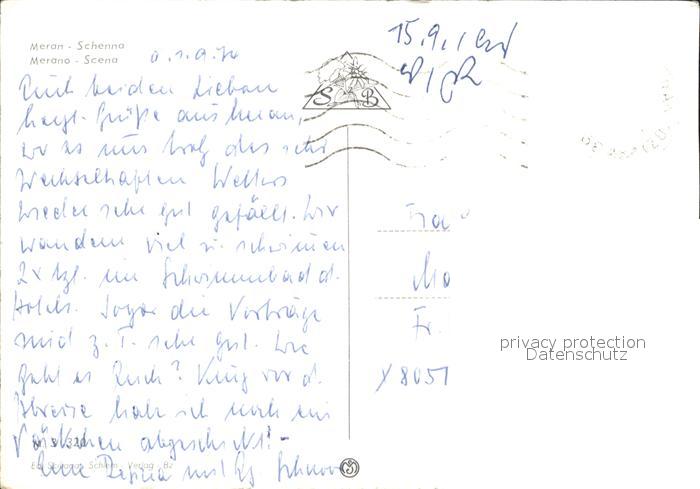 Meran - Schenna
Merano - Scena
Euch beiden Lieben
herzl. Grüße aus Meran,
wo es uns trotz des sehr
wechselhaften Wetters
wieder sehr gut gefällt. Wir
wandern viel u. schwimmen
2x tgl. im Schwimmbad d.
Hotels. Sogar die Vorträge
sind z. T. sehr gut. Wie
geht es Euch? Kurz vor d.
Abreise habe ich noch ein
Päckchen abgeschickt! -
Eure
15.9.
S B
Frau
Mo
Fr.
8051
privacy protection
Datenschutz